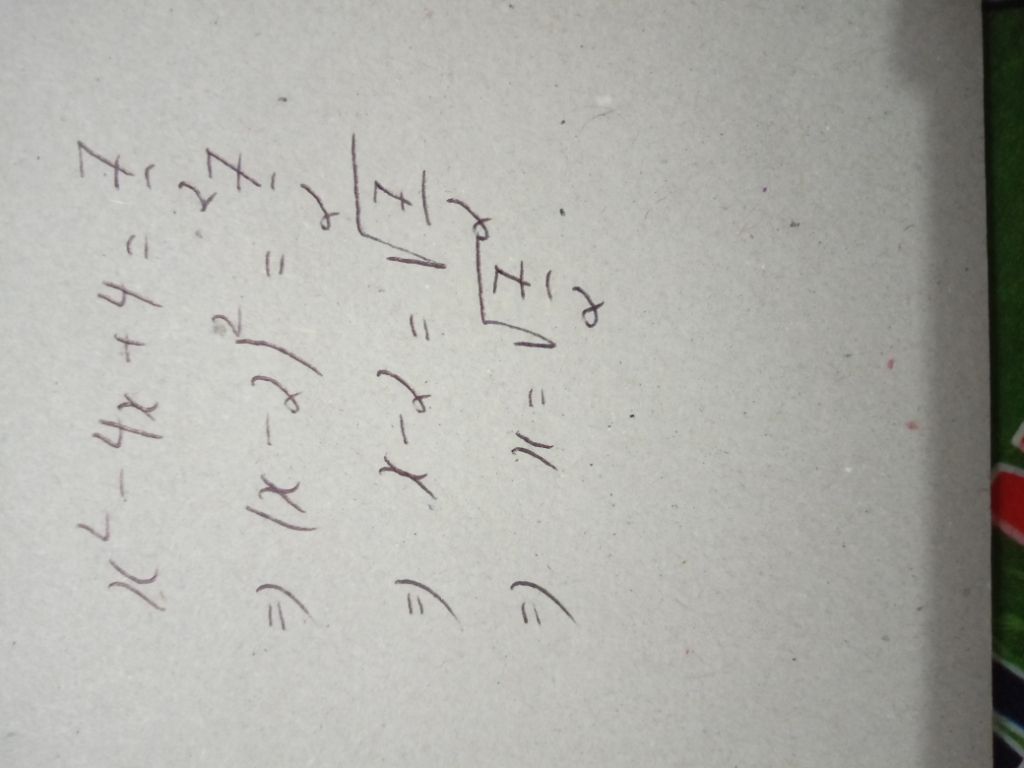 x² - 4x + 4 = 7/2
⇒ (x - 2)² = 7/2
⇒ x - 2 = √7/2
⇒ x = √7/2